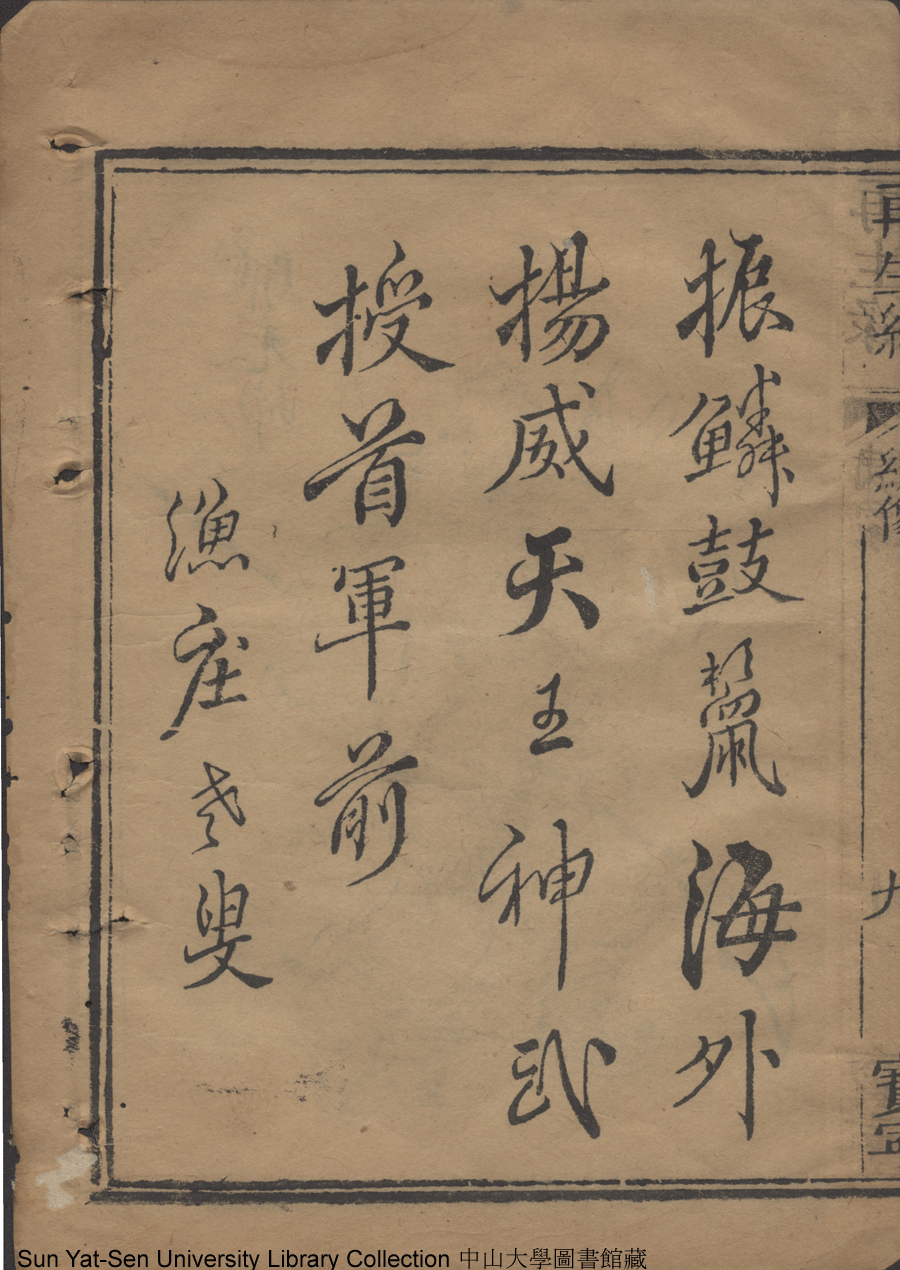 振鱗鼓鬣海外
揚威天王神武
授首軍前
漁庄老叟
再生緣
繡像
九
寶寧
Sun Yat-Sen University Library Collection 中山大學圖書館藏